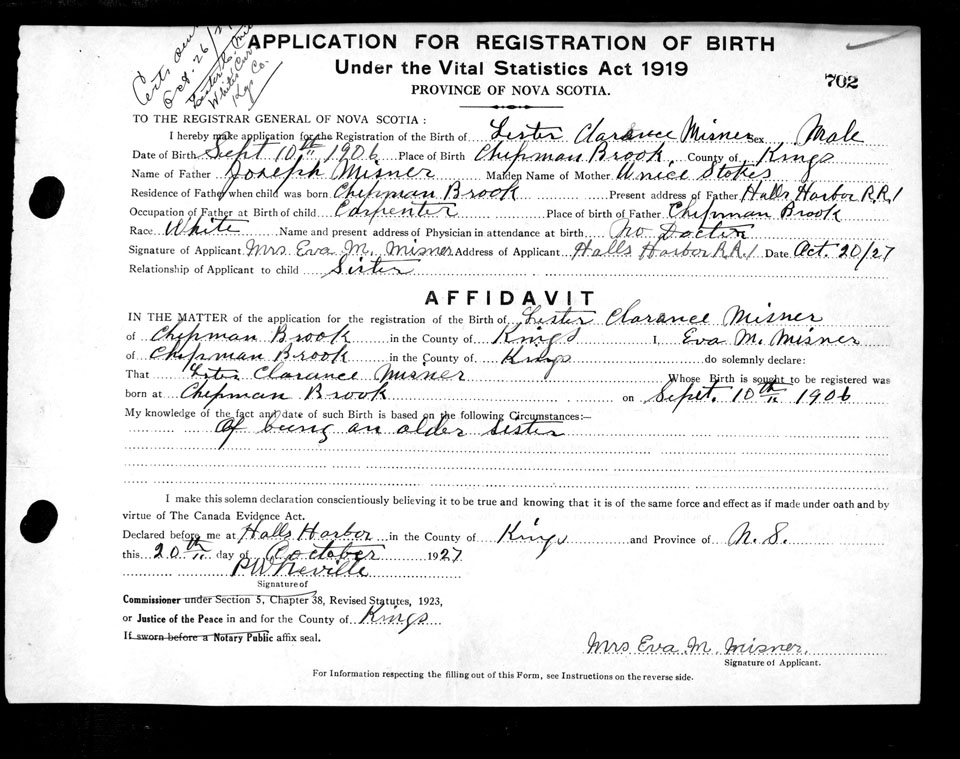 Certs sent
Oct. 26/27
Lester C. Mis
White's Cor
Kgs Co.
APPLICATION FOR REGISTRATION OF BIRTH
Under the Vital Statistics Act 1919
702
PROVINCE OF NOVA SCOTIA.
TO THE REGISTRAR GENERAL OF NOVA SCOTIA :
I hereby make application for the Registration of the Birth of Lester Clarance Misner Sex Male
Date of Birth Sept 10th 1906 Place of Birth Chipman Brook, County of Kings
Name of Father Joseph Misner Maiden Name of Mother Unice Stokes
Residence of Father when child was born Chipman Brook Present address of Father Halls Harbor R.R.1
Occupation of Father at Birth of child Carpenter Place of birth of Father Chipman Brook
Race White Name and present address of Physician in attendance at birth No Doctor
Signature of Applicant Mrs Eva M. Misner Address of Applicant Halls Harbor R.R.1 Date Oct. 20/27
Relationship of Applicant to child Sister
AFFIDAVIT
IN THE MATTER of the application for the registration of the Birth of Lester Clarance Misner
of Chipman Brook in the County of Kings I, Eva M. Misner
of Chipman Brook in the County of Kings do solemnly declare:
That Lester Clarance Misner Whose Birth is sought to be registered was
born at Chipman Brook on Sept. 10th 1906
My knowledge of the fact and date of such Birth is based on the following Circumstances:—
Of being an older sister
I make this solemn declaration conscientiously believing it to be true and knowing that it is of the same force and effect as if made under oath and by
virtue of The Canada Evidence Act.
Declared before me at Halls Harbor in the County of Kings and Province of N. S.
this 20th day of October 1927
P W Neville
Signature of
Commissioner under Section 5, Chapter 38, Revised Statutes, 1923,
or Justice of the Peace in and for the County of Kings
If sworn before a Notary Public affix seal.
Mrs Eva M. Misner
Signature of Applicant.
For Information respecting the filling out of this Form, see Instructions on the reverse side.